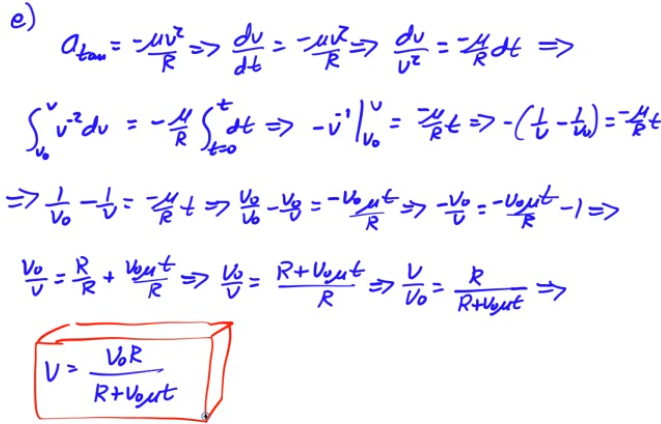 e)
a_tan = -μv²/R => dv/dt = -μv²/R => dv/v² = -μ/R dt =>
∫_{v₀}^{v} v⁻² dv = -μ/R ∫_{t=0}^{t} dt => -v⁻¹ |_{v₀}^{v} = -μ/R t => -(1/v - 1/v₀) = -μ/R t
=> 1/v₀ - 1/v = -μ/R t => v₀/v₀ - v₀/v = -v₀μt/R => -v₀/v = -v₀μt/R - 1 =>
v₀/v = R/R + v₀μt/R => v₀/v = (R+v₀μt)/R => v/v₀ = R/(R+v₀μt) =>
v = v₀R/(R+v₀μt)